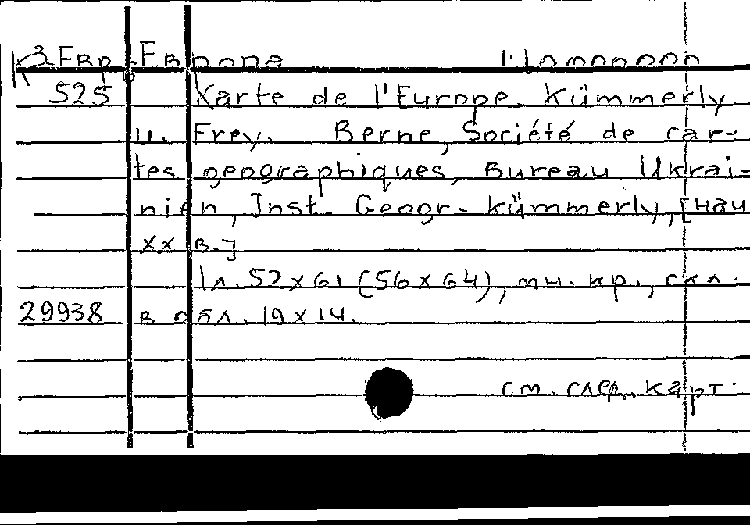 К3 Евр. Европа 1:10000000
525 Karte de l'Europe. Kümmerly
u. Frey. Berne, Société de car-
tes geographiques, Bureau Ukrai-
nien, Inst. Geogr. Kümmerly, [нач
XX в.]
1л. 52x61 (56x64), мн. кр., скл.
29938 в обл. 19x14.
см. след. карт.